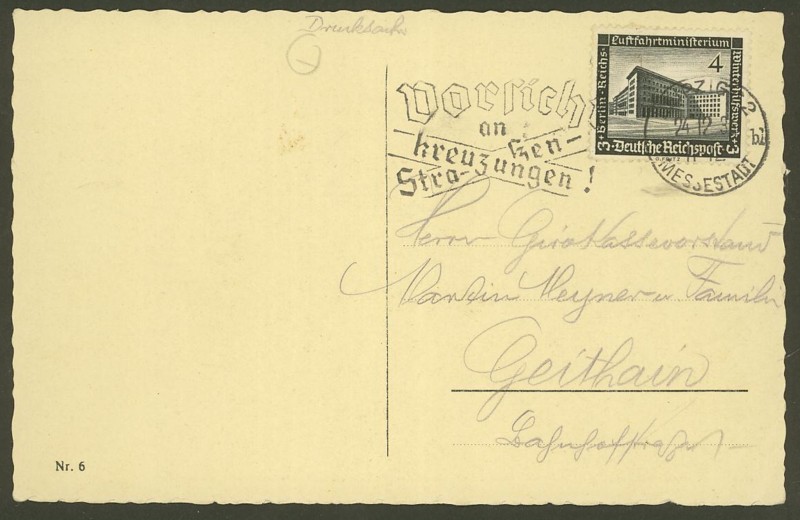 Drucksache
Luftfahrtministerium
4
Berlin · Reichs-
Winterhilfswerk
3 Deutsche Reichspost 3
Vorsicht
an
Straßen-
kreuzungen!
LEIPZIG C2
24.12.3
bb
MESSESTADT
Herrn Girokassevorstand
Martin Meyner u Familie
Geithain
Bahnhofstraße
Nr. 6